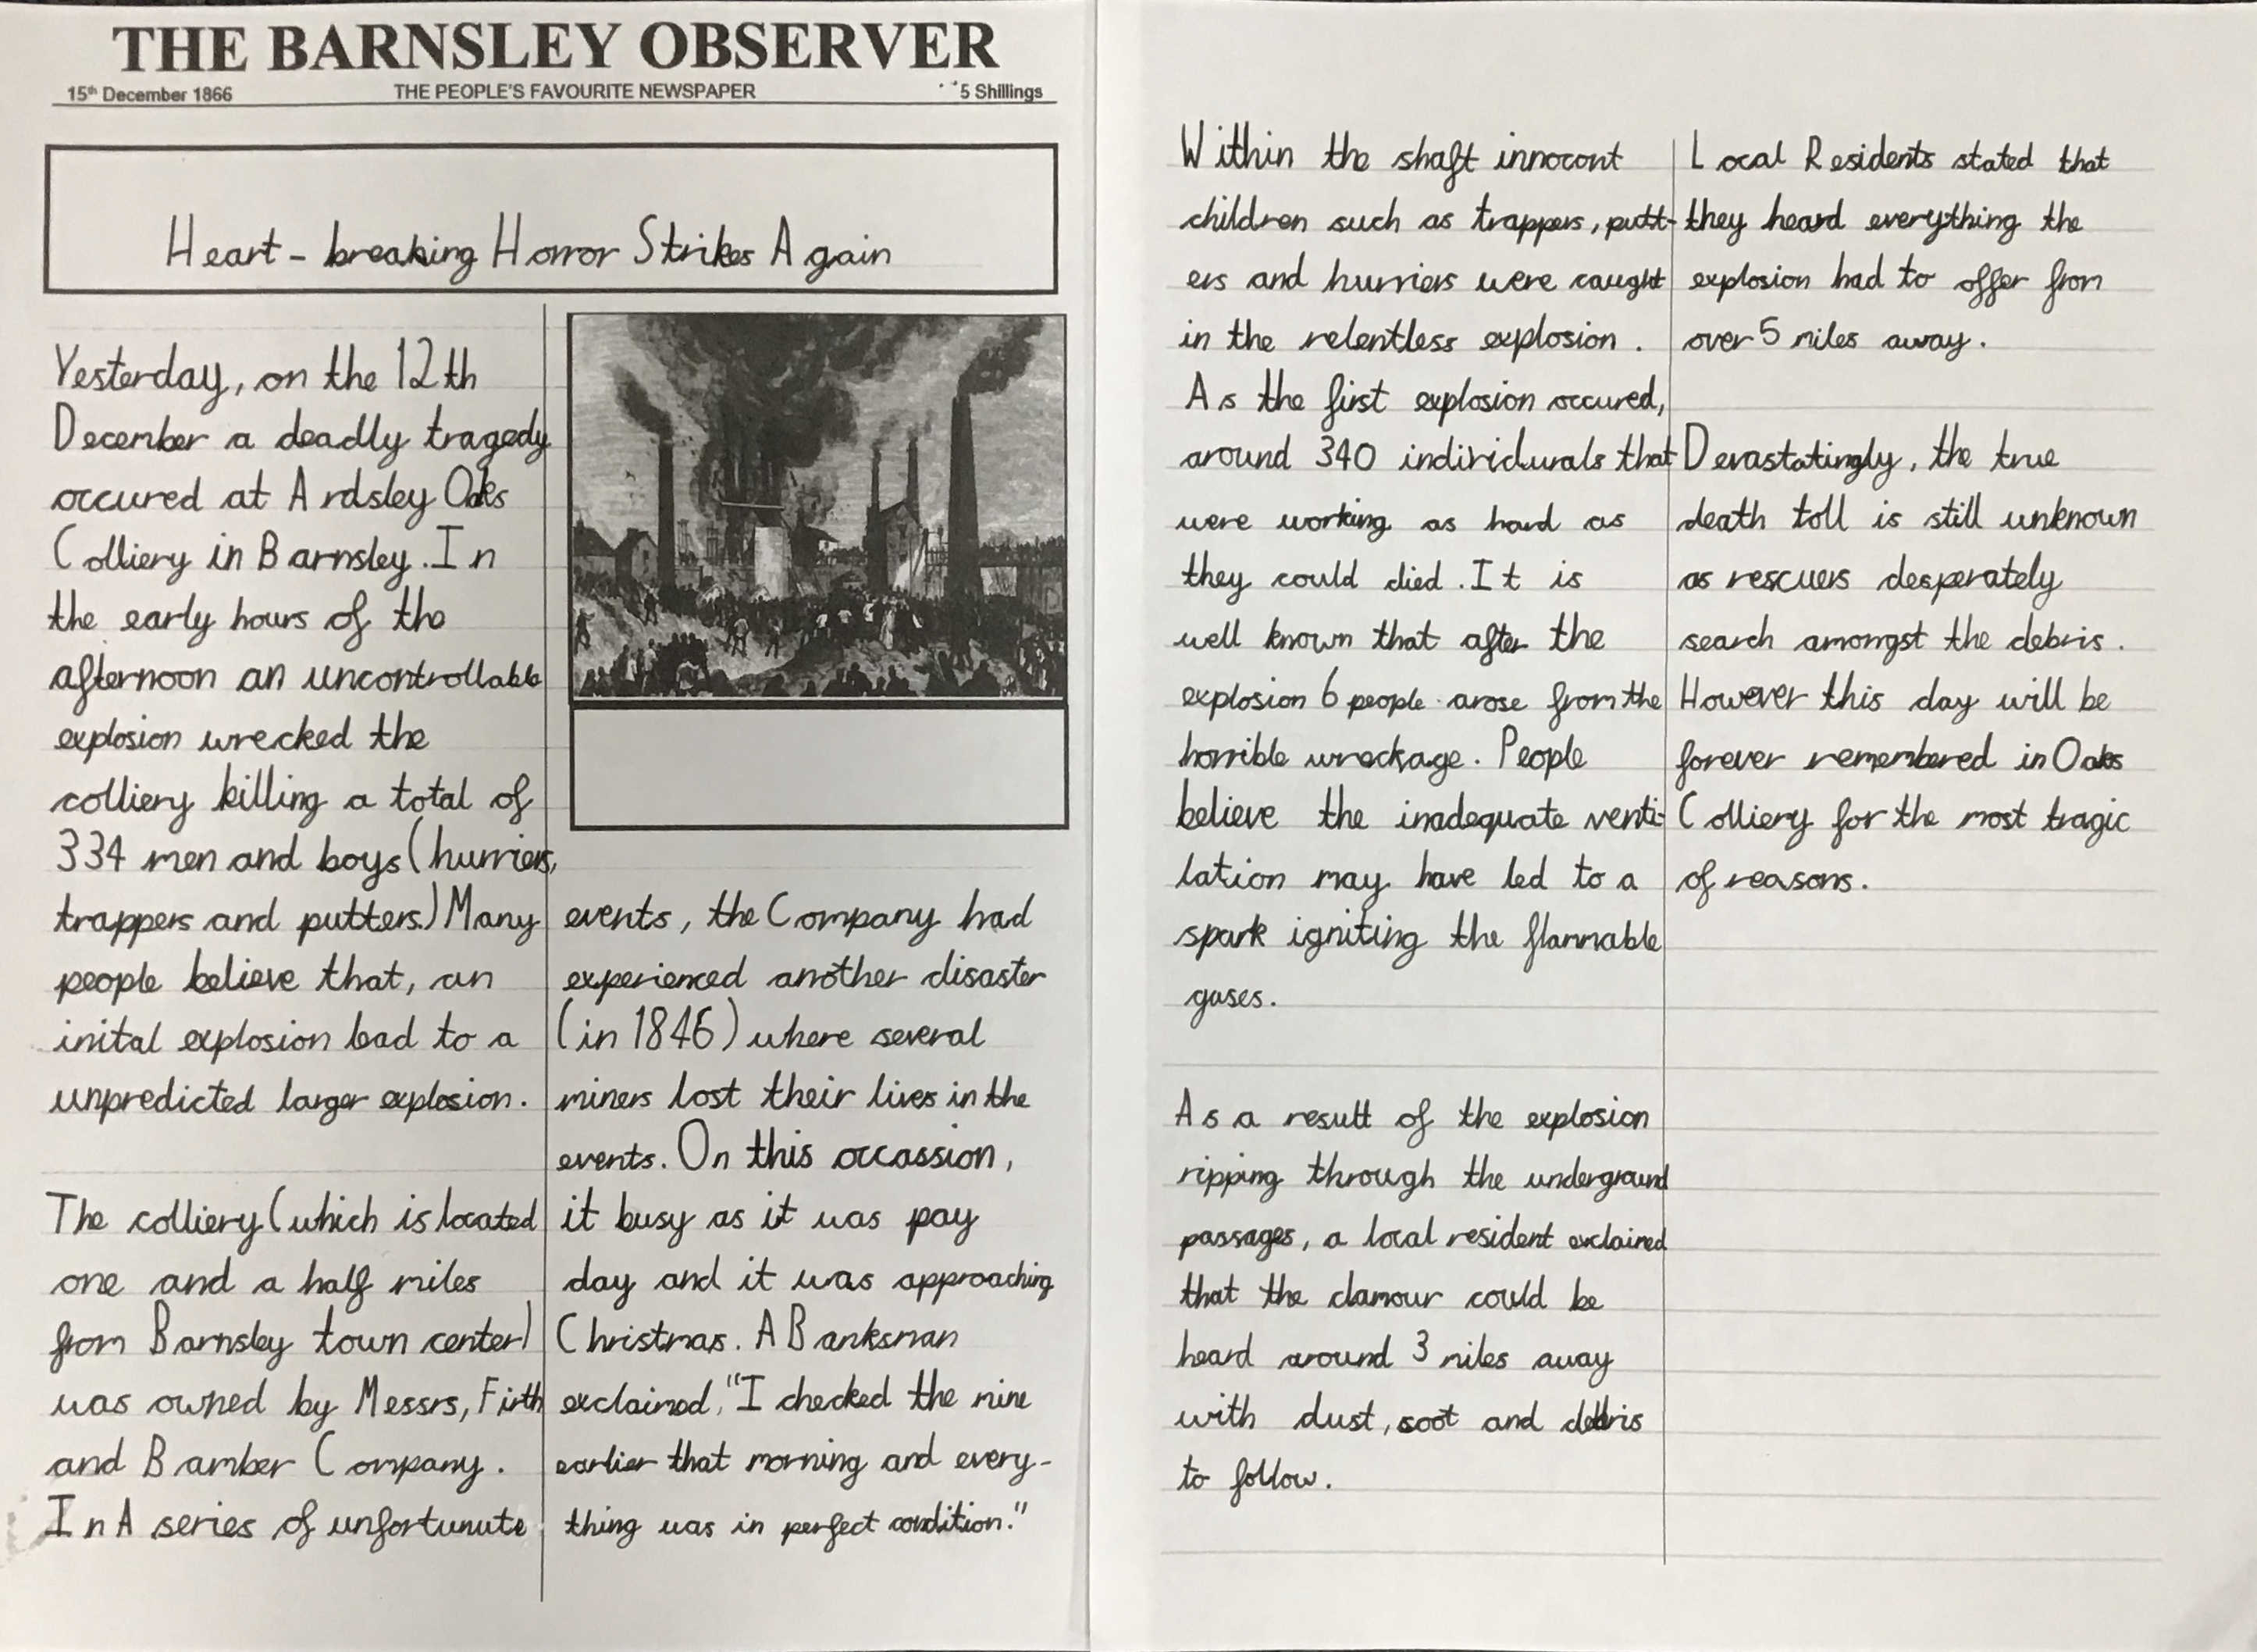 THE BARNSLEY OBSERVER
15th December 1866 THE PEOPLE'S FAVOURITE NEWSPAPER 5 Shillings
Heart-breaking Horror Strikes Again
Yesterday, on the 12th
December a deadly tragedy
occured at Ardsley Oaks
Colliery in Barnsley. In
the early hours of the
afternoon an uncontrollable
explosion wrecked the
colliery killing a total of
334 men and boys (hurriers,
trappers and putters.) Many
people believe that, an
inital explosion lead to a
unpredicted larger explosion.
The colliery (which is located
one and a half miles
from Barnsley town center)
was owned by Messrs, Firth
and Bamber Company.
In A series of unfortunute
events, the Company had
experienced another disaster
(in 1846) where several
miners lost their lives in the
events. On this occassion,
it busy as it was pay
day and it was approaching
Christmas. A Banksman
exclaimed, "I checked the mine
earlier that morning and every-
thing was in perfect condition."
Within the shaft innocont
children such as trappers, putt-
ers and hurriers were caught
in the relentless explosion.
As the first explosion occured,
around 340 individurals that
were working as hard as
they could died. It is
well known that after the
explosion 6 people arose from the
horrible wreckage. People
believe the inadequate venti-
lation may have led to a
spark igniting the flammable
gases.
As a result of the explosion
ripping through the underground
passages, a local resident exclaimed
that the clamour could be
heard around 3 miles away
with dust, soot and debris
to follow.
Local Residents stated that
they heard everything the
explosion had to offer from
over 5 miles away.
Devastatingly, the true
death toll is still unknown
as rescuers desperately
search amongst the debris.
However this day will be
forever remembered in Oaks
Colliery for the most tragic
of reasons.